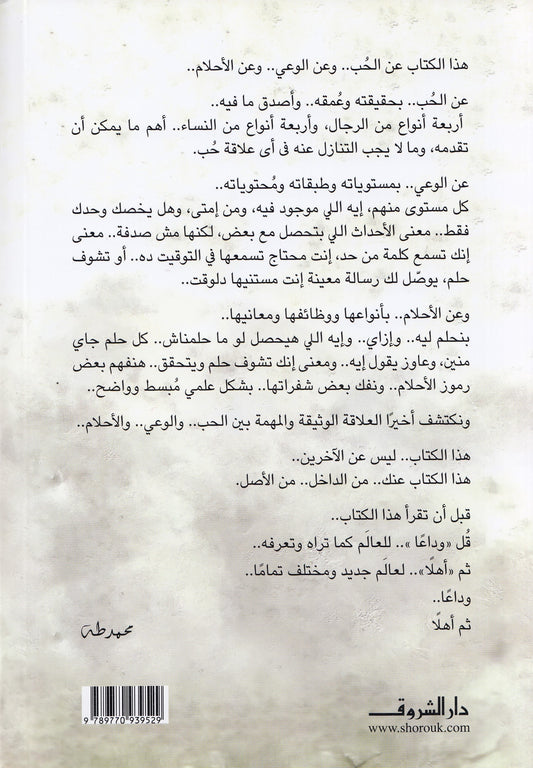 هذا الكتاب عن الحُب.. وعن الوعي.. وعن الأحلام..
عن الحُب.. بحقيقته وعُمقه.. وأصدق ما فيه..
أربعة أنواع من الرجال، وأربعة أنواع من النساء.. أهم ما يمكن أن
تقدمه، وما لا يجب التنازل عنه فى أى علاقة حُب.
عن الوعي.. بمستوياته وطبقاته ومُحتوياته..
كل مستوى منهم، إيه اللي موجود فيه، ومن إمتى، وهل يخصك وحدك
فقط.. معنى الأحداث اللي بتحصل مع بعض، لكنها مش صدفة.. معنى
إنك تسمع كلمة من حد، إنت محتاج تسمعها في التوقيت ده.. أو تشوف
حلم، يوصّل لك رسالة معينة إنت مستنيها دلوقت..
وعن الأحلام.. بأنواعها ووظائفها ومعانيها..
بنحلم ليه.. وإزاي.. وإيه اللي هيحصل لو ما حلمناش.. كل حلم جاي
منين، وعاوز يقول إيه.. ومعنى إنك تشوف حلم ويتحقق.. هنفهم بعض
رموز الأحلام.. ونفك بعض شفراتها.. بشكل علمي مُبسط وواضح..
ونكتشف أخيرًا العلاقة الوثيقة والمهمة بين الحب.. والوعي.. والأحلام..
هذا الكتاب.. ليس عن الآخرين..
هذا الكتاب عنك.. من الداخل.. من الأصل.
قبل أن تقرأ هذا الكتاب..
قُل «وداعًا».. للعالم كما تراه وتعرفه..
ثم «أهلًا».. لعالَم جديد ومختلف تمامًا..
وداعًا..
ثم أهلًا
محمد طه
دار الشروق
www.shorouk.com
9 789770 939529